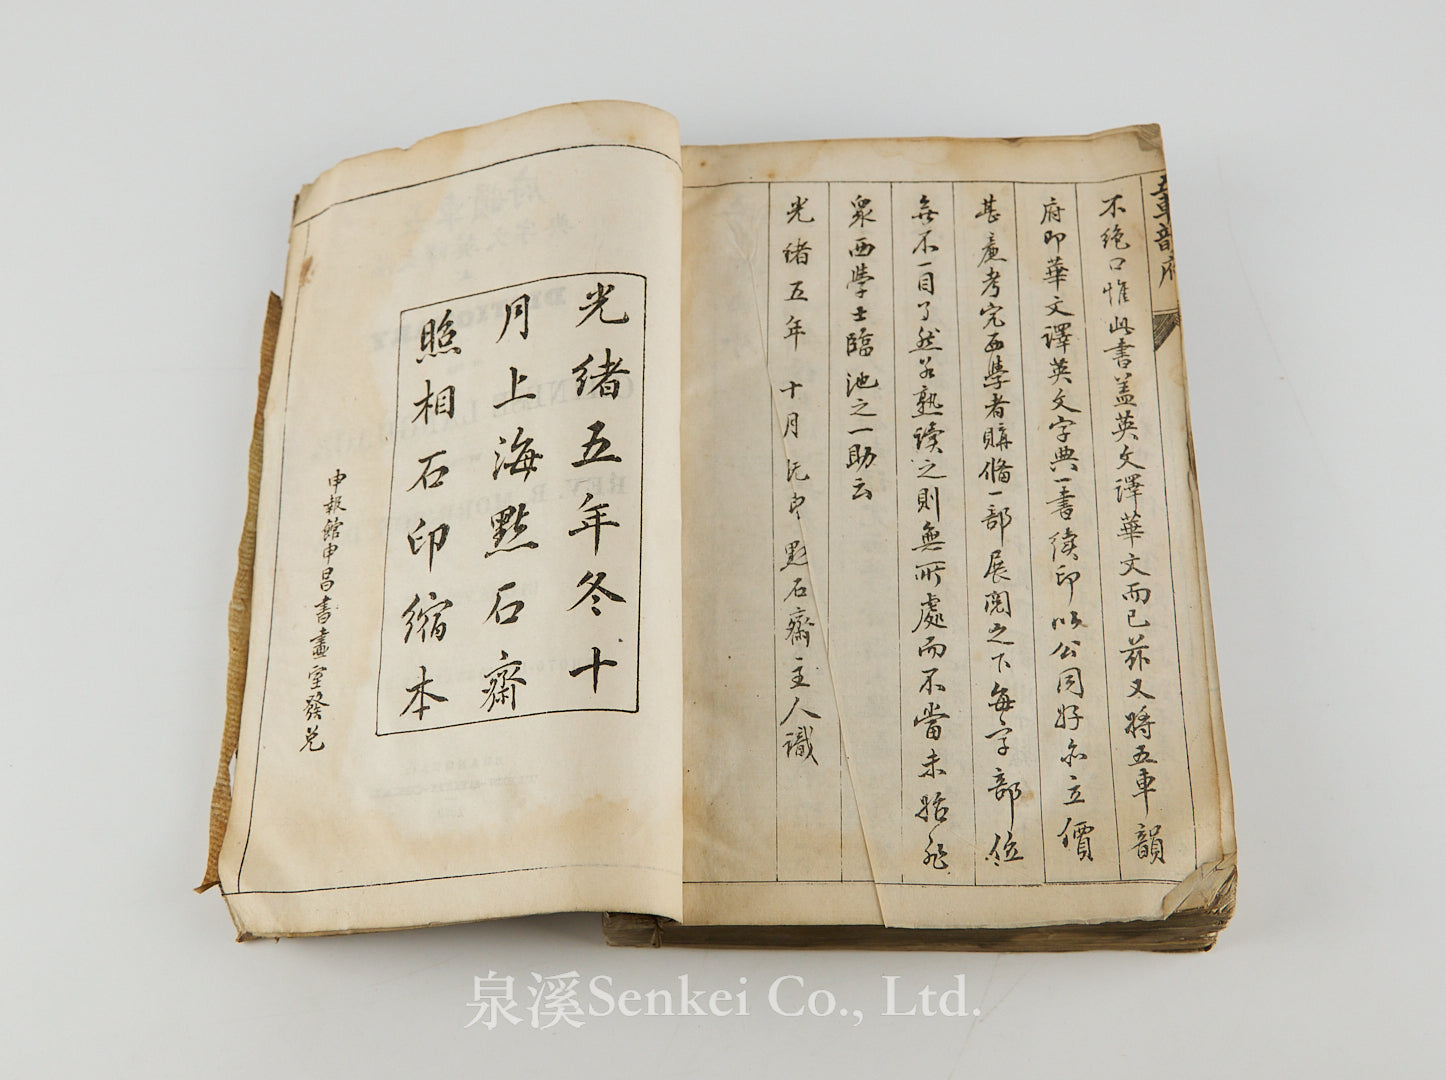 五車韻府
不絶口惟此書盖英文譯華文而已茲又將五車韻
府即華文譯英文字典一書續印以公同好亦立價
甚廉考究西學者購備一部展閱之下每字部位
無不一目了然若熟讀之則無所處而不當未始非
衆西學士臨池之一助云
光緒五年 十月 點石齋主人識
光緒五年冬十
月上海點石齋
照相石印縮本
申報館申昌書畫室發兌
泉溪Senkei Co., Ltd.